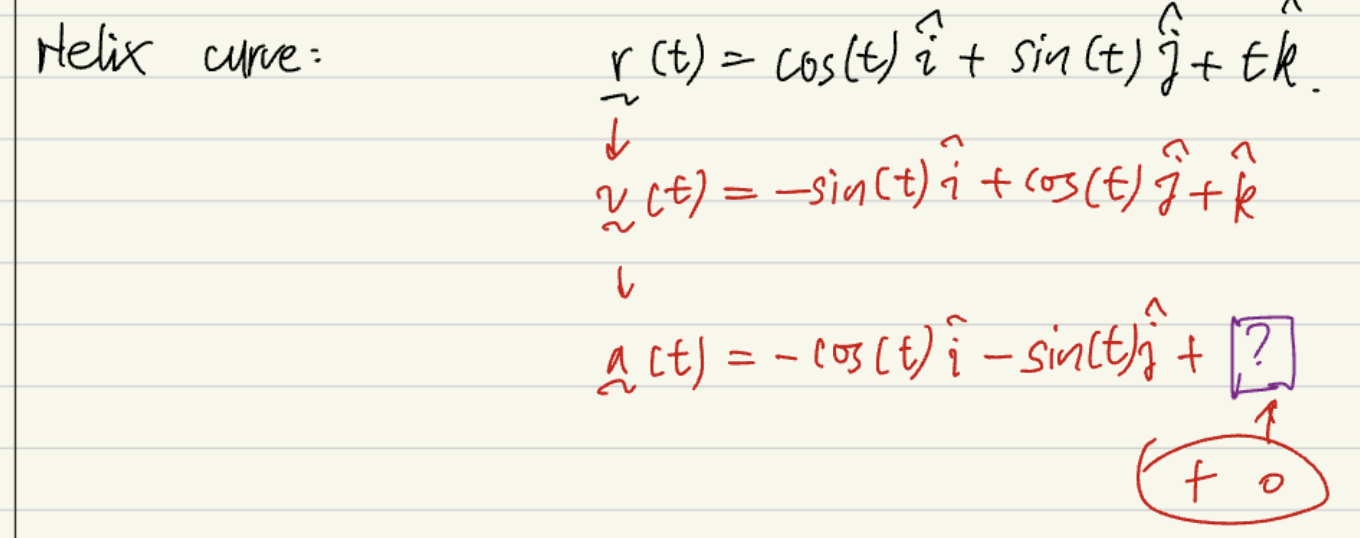 Helix curve: r̰(t) = cos(t) î + sin(t) ĵ + t k̂.
↓
v̰(t) = -sin(t) î + cos(t) ĵ + k̂
↓
a̰(t) = -cos(t) î - sin(t) ĵ + ?
↑
+ 0